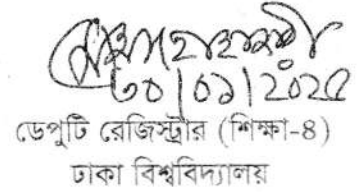 ৩০|০১|২০২৫
ডেপুটি রেজিস্ট্রার (শিক্ষা-৪)
ঢাকা বিশ্ববিদ্যালয়